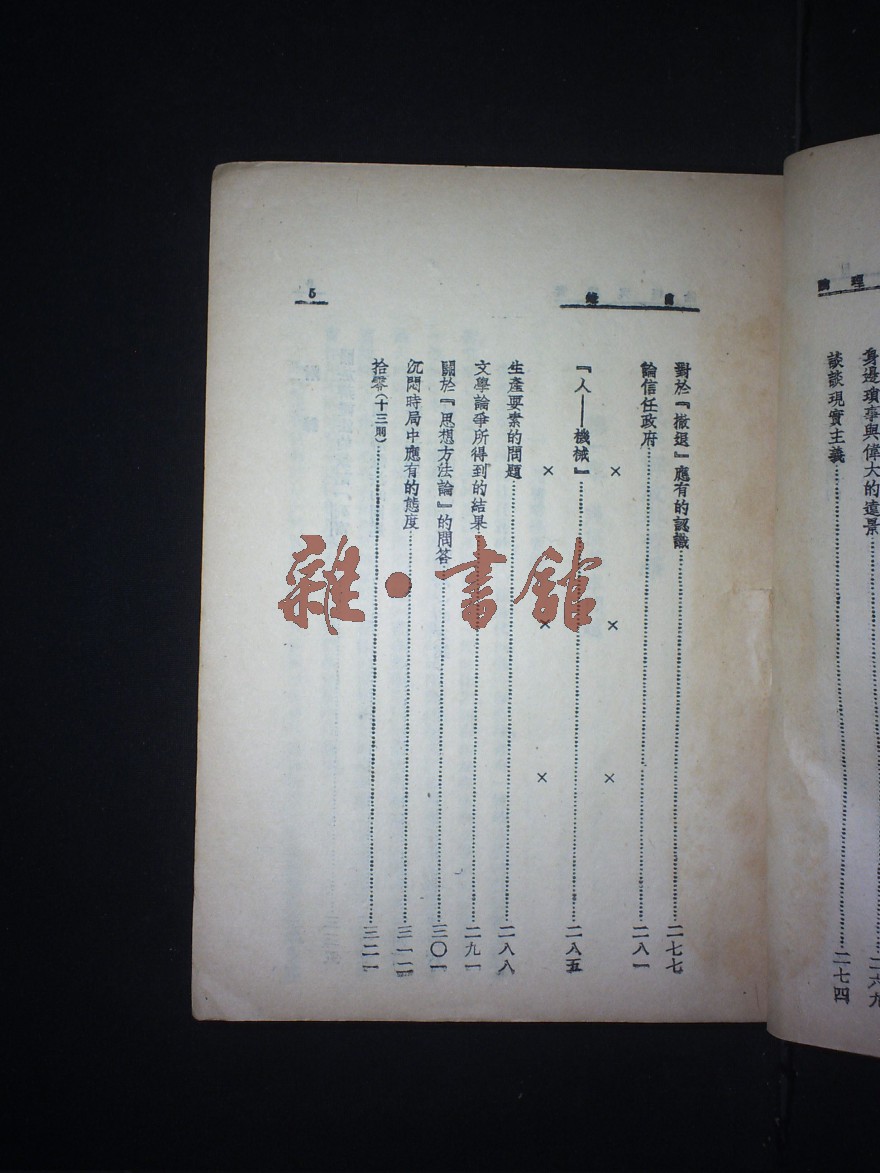 論理
身邊瑣事與偉大的遠景……二六九
談談現實主義……二七四
目錄
5
對於『撤退』應有的認識……二七七
論信任政府……二八一
× × ×
『人——機械』……二八五
× × ×
生產要素的問題……二八八
文學論爭所得到的結果……二九一
關於『思想方法論』的問答……三〇一
沉悶時局中應有的態度……三一二
拾零(十三則)……三二一
雜·書館